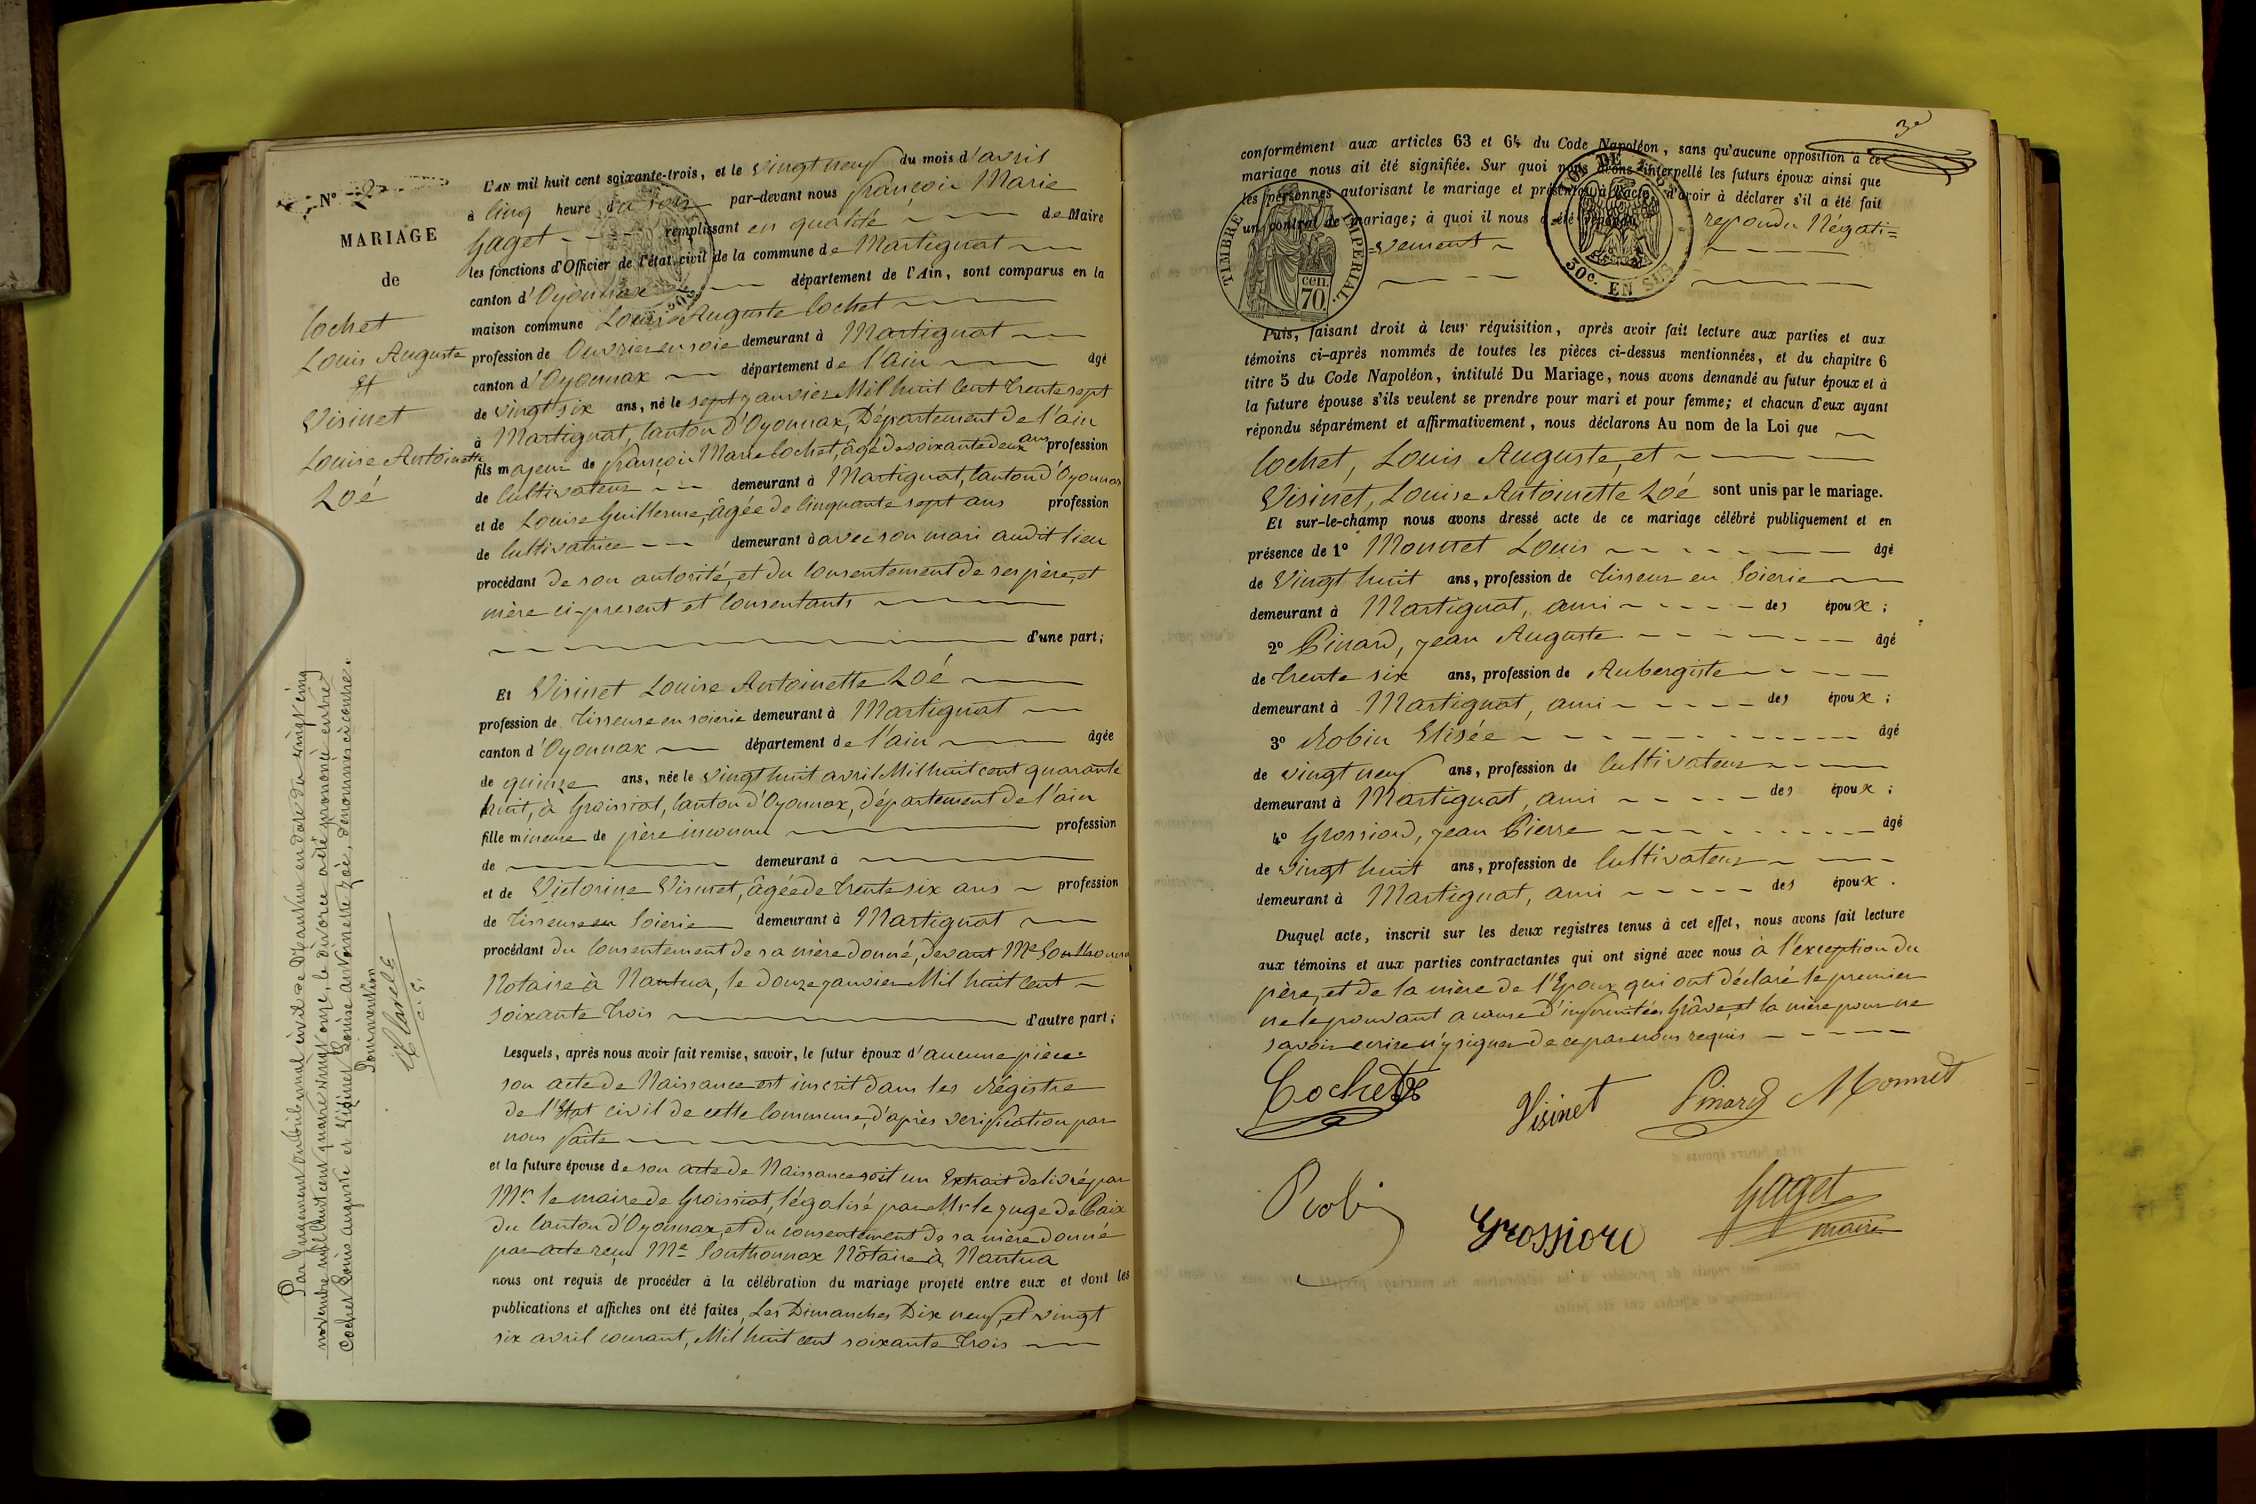 N° 2
MARIAGE
de
Cochet
Louis Auguste
Et
Visinet
Louise Antoinette
Zoé
Par jugement du tribunal civil de Nantua en date du vingt cinq
novembre mil huit cent quatre vingt onze, le divorce a été prononcé entre
Cochet Louis Auguste et Louise Antoinette Zoé, dénommés ci contre.
Pour mention
L'AN mil huit cent soixante-trois, et le vingt neuf du mois d'avril
à Cinq heure du soir par-devant nous françois Marie
Gaget remplissant en qualité de Maire
les fonctions d'Officier de l'état civil de la commune de Martignat
canton d'Oyonnax département de l'Ain, sont comparus en la
maison commune Louis Auguste Cochet
profession de Ouvrier en soie demeurant à Martignat
canton d'Oyonnax département de l'ain âgé
de vingt six ans, né le sept janvier Mil huit Cent trente sept
à Martignat, Canton d'Oyonnax, Département de l'ain
fils majeur de françois Marie Cochet, âgé de soixante deux ans profession
de Cultivateur demeurant à Martignat, Canton d'Oyonnax
et de Louise Guillerme, âgée de Cinquante sept ans profession
de Cultivatrice demeurant à avec son mari audit lieu
procédant de son autorité, et du Consentement de ses père, et
mère ci-present et Consentants
d'une part;
Et Visinet Louise Antoinette Zoé
profession de Tisseuse en soierie demeurant à Martignat
canton d'Oyonnax département de l'ain âgée
de quinze ans, née le vingt huit avril Mil huit cent quarante
huit, à Groissiat, Canton d'Oyonnax, département de l'ain
fille mineure de père inconnu profession
de demeurant à
et de Victorine Visinet, âgée de trente six ans profession
de Tisseuse en Soierie demeurant à Martignat
procédant du Consentement de sa mère donné, devant Me Southonnax
Notaire à Nantua, le douze janvier Mil huit Cent
soixante trois d'autre part;
Lesquels, après nous avoir fait remise, savoir, le futur époux d'aucune pièce
son acte de Naissance est inscrit dans les Régistre
de l'Etat civil de cette Commune, d'après verification par
nous faite
et la future épouse de son acte de Naissance soit un Extrait delivré par
Mr. le maire de Groissiat, légalisé par Mr le juge de Paix
du Canton d'Oyonnax, et du consentement de sa mère donné
par acte reçu Me Southonnax Notaire à Nantua
nous ont requis de procéder à la célébration du mariage projeté entre eux et dont les
publications et affiches ont été faites, Les Dimanches Dix neuf, et vingt
six avril courant, Mil huit cent soixante trois
3e
conformément aux articles 63 et 64 du Code Napoléon, sans qu'aucune opposition à ce
mariage nous ait été signifiée. Sur quoi nous avons interpellé les futurs époux ainsi que
les personnes autorisant le mariage et présentes à l'acte, d'avoir à déclarer s'il a été fait
un contrat de mariage; à quoi il nous a été répondu repondu Négati=
=vement
TIMBRE IMPERIAL.
cen. 70
30c. EN SUS
Puis, faisant droit à leur réquisition, après avoir fait lecture aux parties et aux
témoins ci-après nommés de toutes les pièces ci-dessus mentionnées, et du chapitre 6
titre 5 du Code Napoléon, intitulé Du Mariage, nous avons demandé au futur époux et à
la future épouse s'ils veulent se prendre pour mari et pour femme; et chacun d'eux ayant
répondu séparément et affirmativement, nous déclarons Au nom de la Loi que
Cochet, Louis Auguste, et
Visinet, Louise Antoinette Zoé sont unis par le mariage.
Et sur-le-champ nous avons dressé acte de ce mariage célébré publiquement et en
présence de 1° Monnet Louis âgé
de Vingt huit ans, profession de Tisseur en Soierie
demeurant à Martignat, ami des époux;
2° Pinard, jean Auguste âgé
de trente six ans, profession de Aubergiste
demeurant à Martignat, ami des époux;
3° Robin Elisée âgé
de vingt neuf ans, profession de Cultivateur
demeurant à Martignat, ami des époux;
4° Grossiord, jean Pierre âgé
de vingt huit ans, profession de Cultivateur
demeurant à Martignat, ami des époux.
Duquel acte, inscrit sur les deux registres tenus à cet effet, nous avons fait lecture
aux témoins et aux parties contractantes qui ont signé avec nous à l'exception du
père, et de la mère de l'Epoux qui ont déclaré le premier
ne le pouvant a cause d'infirmitées Grâve, et la mère pour ne
savoir ecrire n'y signer de ce par nous requis
Cochet
Visinet Pinard Monnet
Robin
Grossiord
Gaget
maire